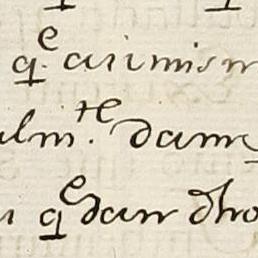 q.^e asimism
alm.^te dame
q^e dan dho